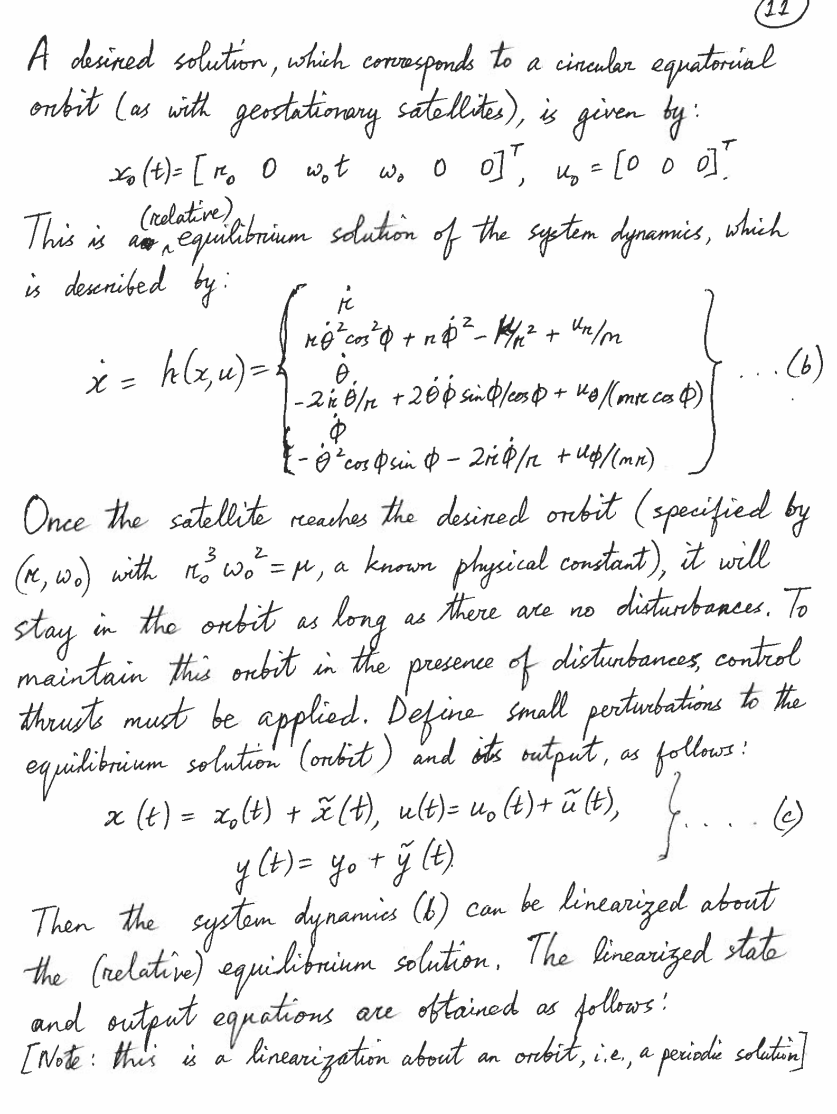 11
A desired solution, which corresponds to a circular equatorial
orbit (as with geostationary satellites), is given by:
x₀(t) = [r₀ 0 ω₀t ω₀ 0 0]ᵀ, u₀ = [0 0 0]ᵀ.
(relative)
This is a ^ equilibrium solution of the system dynamics, which
is described by:
ṙ
rθ̇²cos²ϕ + rϕ̇² − μ/r² + uᵣ/m
ẋ = h(x,u) = { θ̇ } ... (b)
−2ṙθ̇/r + 2θ̇ϕ̇ sinϕ/cosϕ + u_θ/(mr cos ϕ)
ϕ̇
−θ̇²cosϕ sin ϕ − 2ṙϕ̇/r + u_ϕ/(mr)
Once the satellite reaches the desired orbit (specified by
(r, ω₀) with r₀³ω₀² = μ, a known physical constant), it will
stay in the orbit as long as there are no disturbances. To
maintain this orbit in the presence of disturbances, control
thrusts must be applied. Define small perturbations to the
equilibrium solution (orbit) and its output, as follows:
x(t) = x₀(t) + x̃(t), u(t) = u₀(t) + ũ(t), } .... (c)
y(t) = y₀ + ỹ(t)
Then the system dynamics (b) can be linearized about
the (relative) equilibrium solution. The linearized state
and output equations are obtained as follows:
[Note: this is a linearization about an orbit, i.e., a periodic solution]